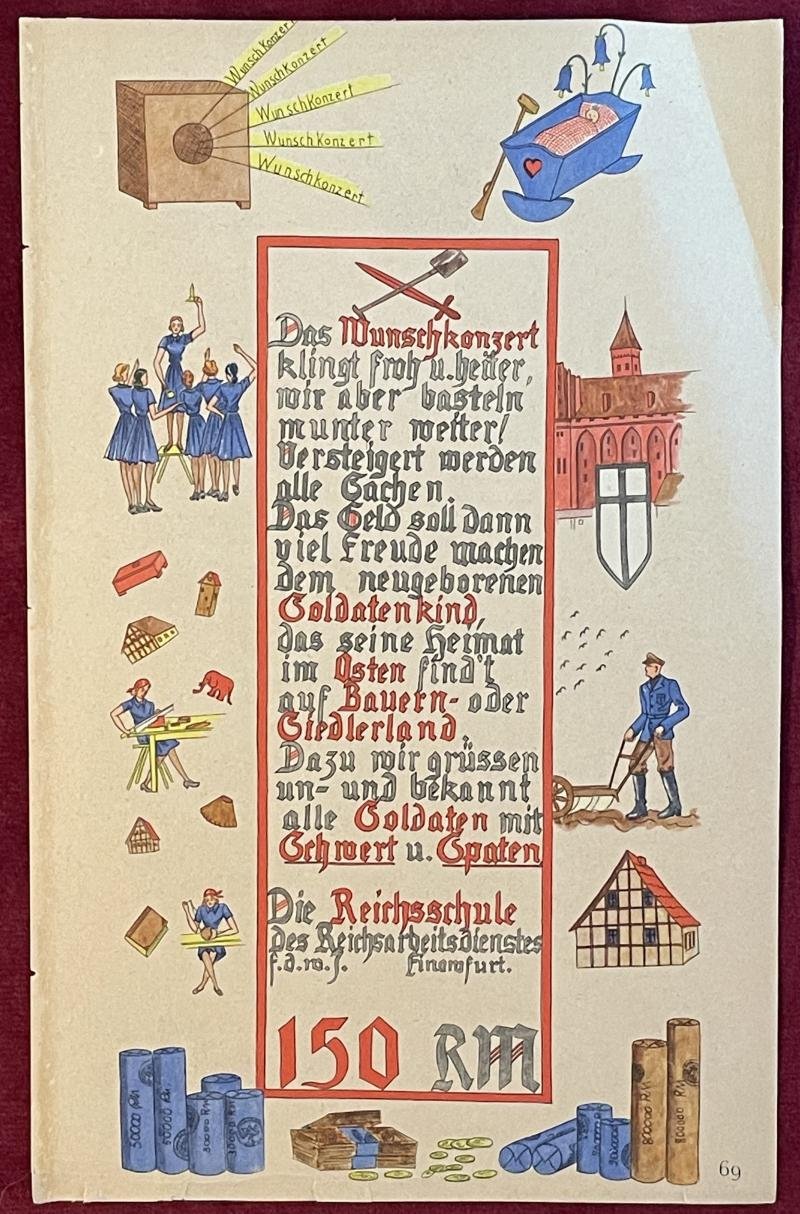 Wunschkonzert
Wunschkonzert
Wunschkonzert
Wunschkonzert
Wunschkonzert
Das Wunschkonzert
klingt froh u. heiter,
wir aber basteln
munter weiter!
Versteigert werden
alle Sachen.
Das Geld soll dann
viel Freude machen
dem neugeborenen
Soldatenkind,
das seine Heimat
im Osten find't
auf Bauern- oder
Siedlerland.
Dazu wir grüssen
un- und bekannt
alle Soldaten mit
Schwert u. Spaten
Die Reichsschule
des Reichsarbeitsdienstes
f.d.w.J. Finowfurt.
150 RM
50000 RM
50000 RM
800000 RM
800000 RM
69